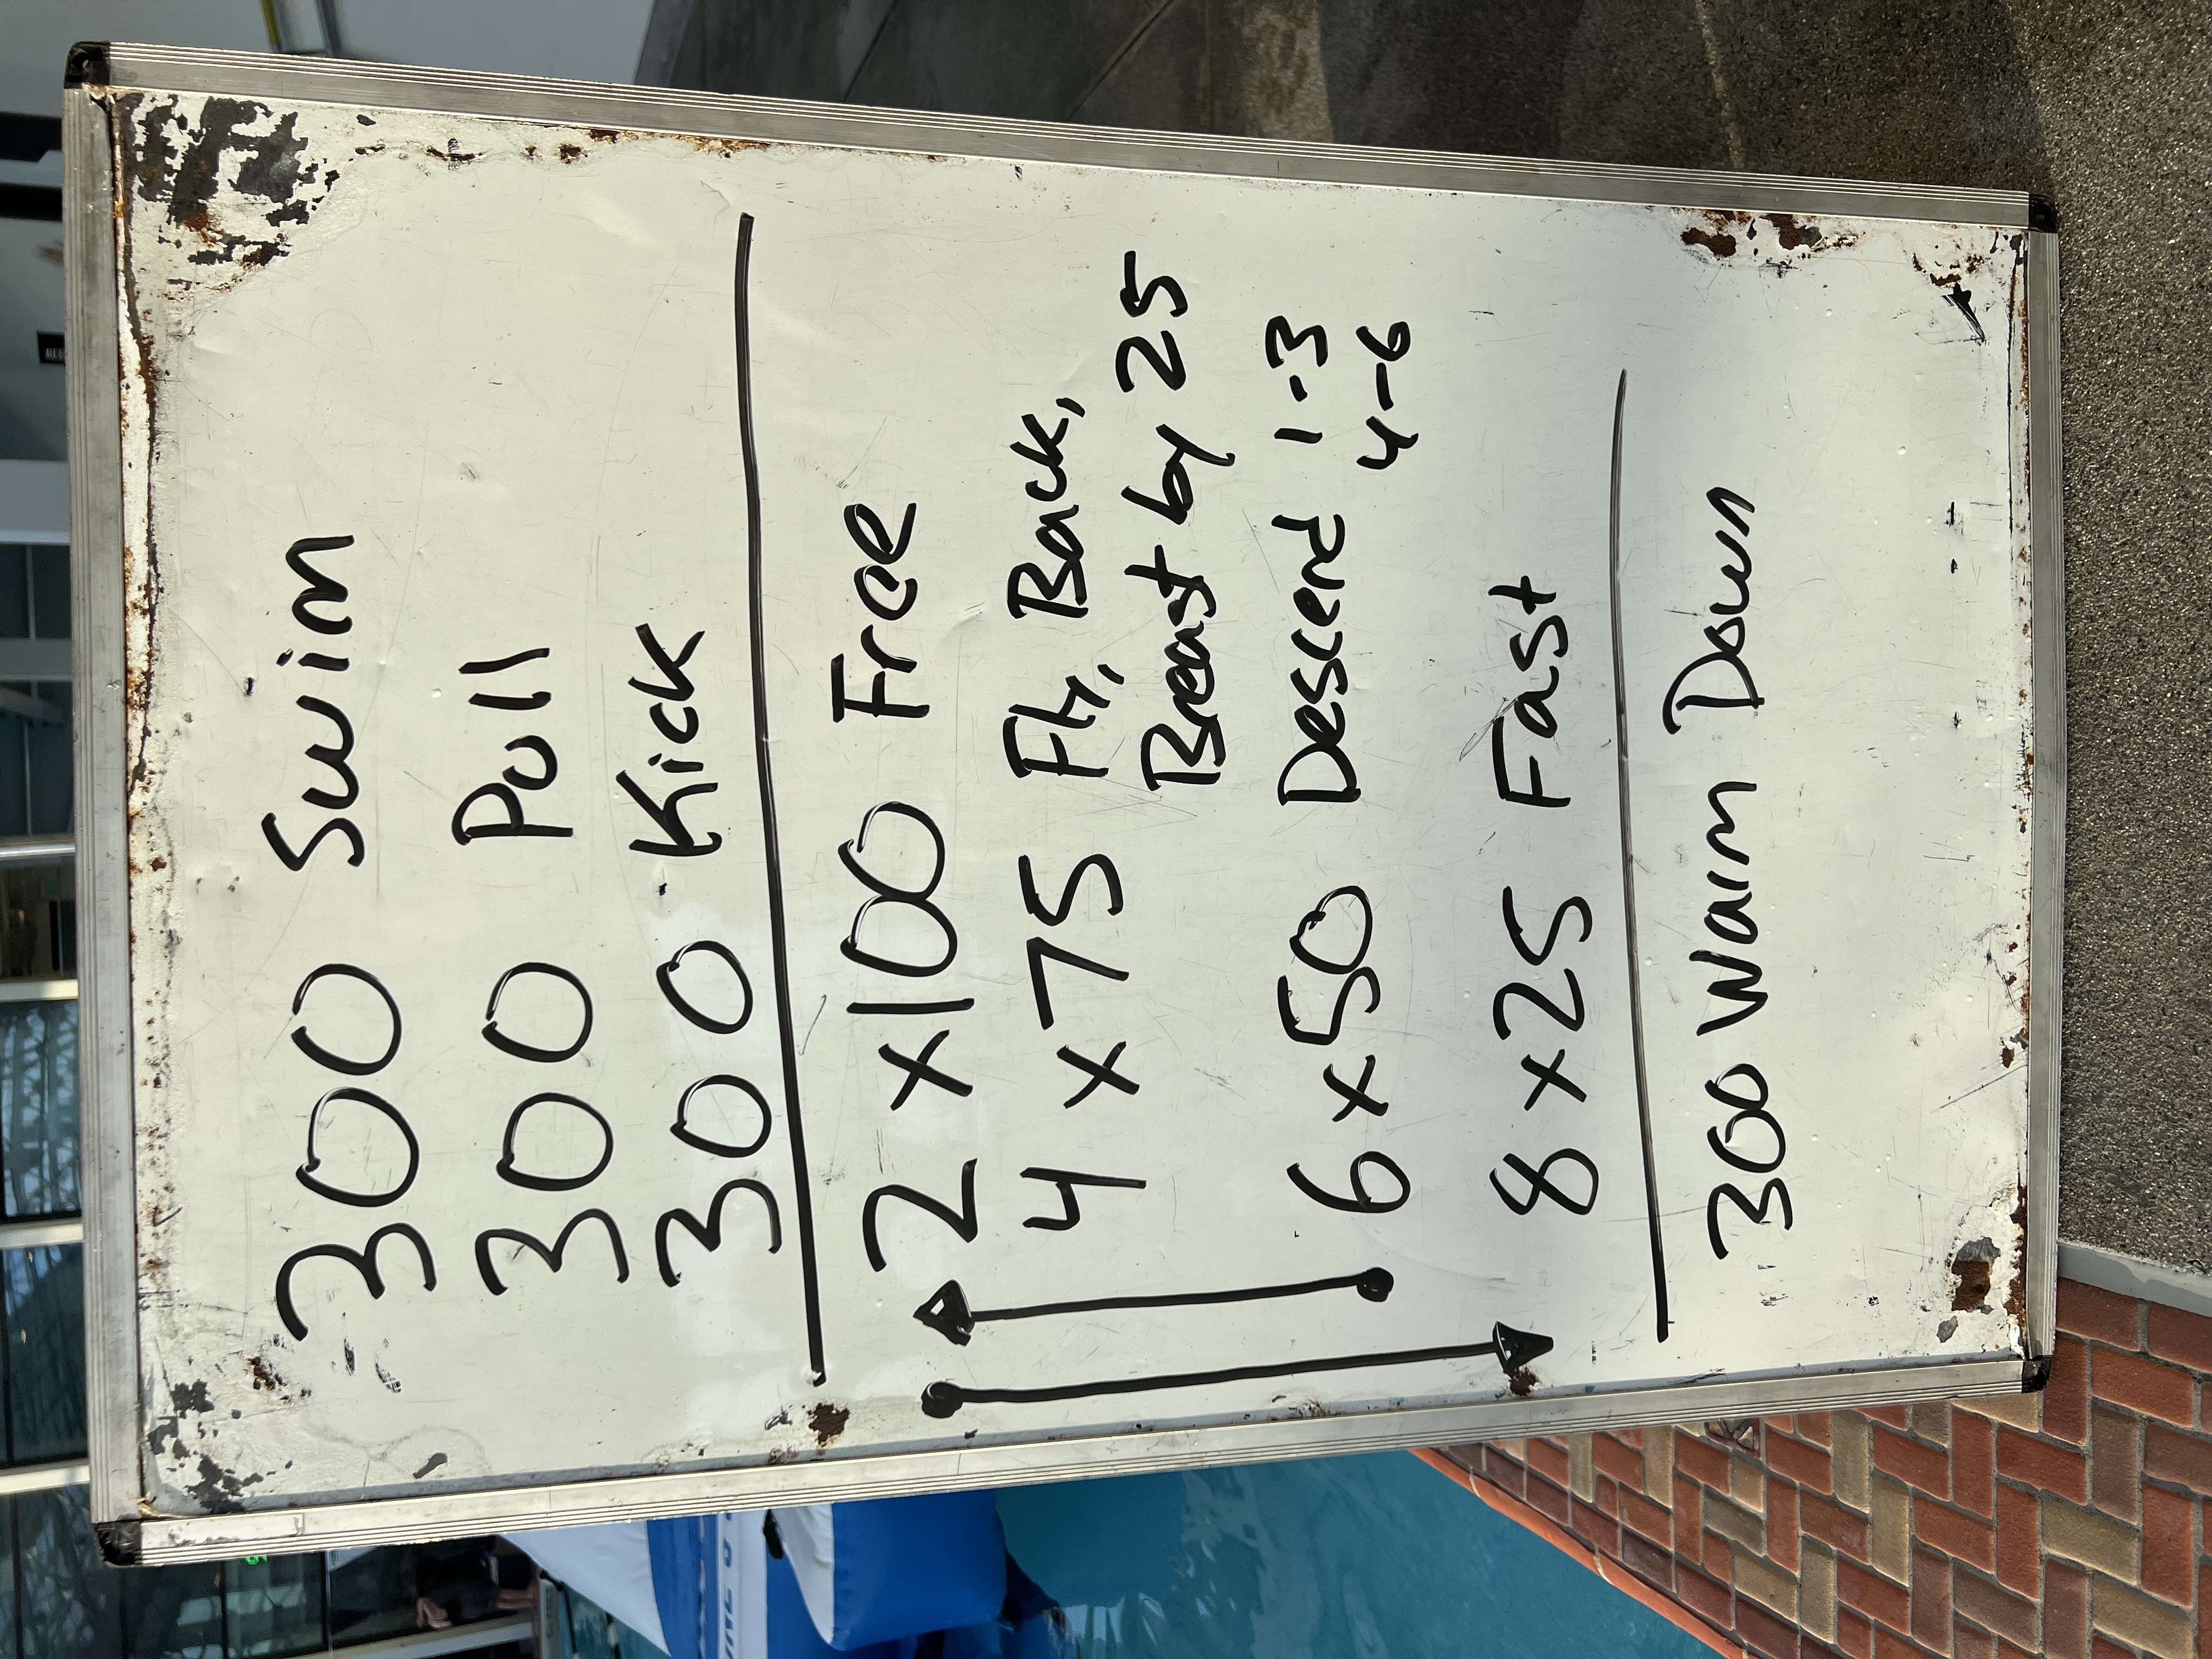 300 Swim
300 Pull
300 Kick
2 x 100 Free
4 x 75 Fly, Back,
Breast by 25
6 x 50 Descend 1-3
4-6
8 x 25 Fast
300 Warm Down